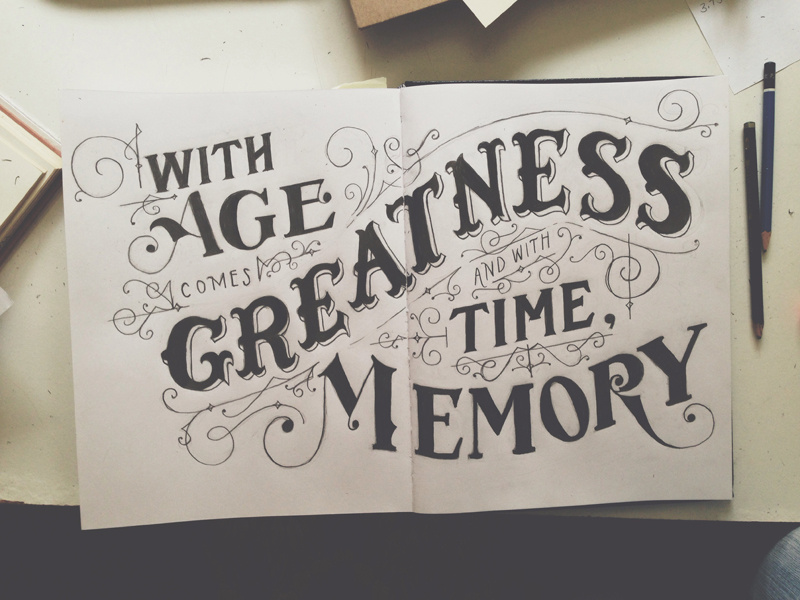 WITH
AGE
COMES
GREATNESS
AND WITH
TIME,
MEMORY